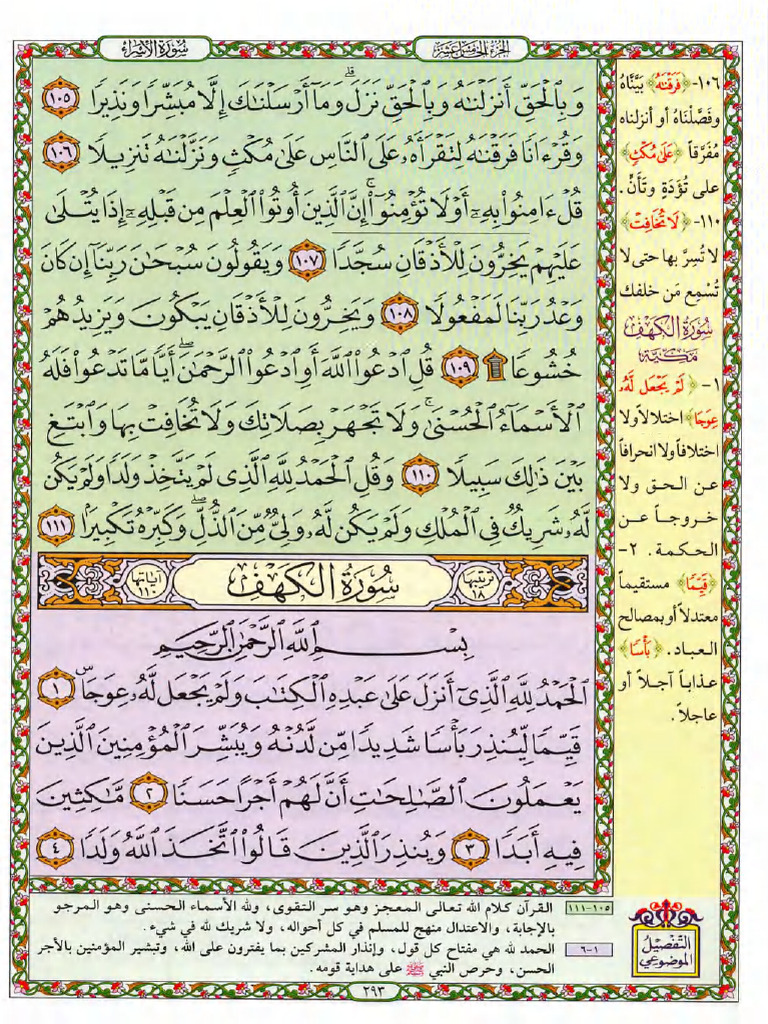 سُورَةُ الْإِسْرَاءِ
الجُزْءُ الخَامِسَ عَشَرَ
وَبِالْحَقِّ أَنزَلْنَٰهُ وَبِالْحَقِّ نَزَلَ ۗ وَمَآ أَرْسَلْنَٰكَ إِلَّا مُبَشِّرًا وَنَذِيرًا ١٠٥
وَقُرْءَانًا فَرَقْنَٰهُ لِتَقْرَأَهُۥ عَلَى النَّاسِ عَلَىٰ مُكْثٍ وَنَزَّلْنَٰهُ تَنزِيلًا ١٠٦
قُلْ ءَامِنُوا۟ بِهِۦٓ أَوْ لَا تُؤْمِنُوٓا۟ ۚ إِنَّ الَّذِينَ أُوتُوا۟ الْعِلْمَ مِن قَبْلِهِۦٓ إِذَا يُتْلَىٰ
عَلَيْهِمْ يَخِرُّونَ لِلْأَذْقَانِ سُجَّدًا ١٠٧ وَيَقُولُونَ سُبْحَٰنَ رَبِّنَآ إِن كَانَ
وَعْدُ رَبِّنَا لَمَفْعُولًا ١٠٨ وَيَخِرُّونَ لِلْأَذْقَانِ يَبْكُونَ وَيَزِيدُهُمْ
خُشُوعًا ۩ ١٠٩ قُلِ ادْعُوا۟ اللَّهَ أَوِ ادْعُوا۟ الرَّحْمَٰنَ ۖ أَيًّا مَّا تَدْعُوا۟ فَلَهُ
الْأَسْمَآءُ الْحُسْنَىٰ ۚ وَلَا تَجْهَرْ بِصَلَاتِكَ وَلَا تُخَافِتْ بِهَا وَابْتَغِ
بَيْنَ ذَٰلِكَ سَبِيلًا ١١٠ وَقُلِ الْحَمْدُ لِلَّهِ الَّذِى لَمْ يَتَّخِذْ وَلَدًا وَلَمْ يَكُن
لَّهُۥ شَرِيكٌ فِى الْمُلْكِ وَلَمْ يَكُن لَّهُۥ وَلِىٌّ مِّنَ الذُّلِّ ۖ وَكَبِّرْهُ تَكْبِيرًۢا ١١١
ترتيبها ١٨
سُورَةُ الكَهْف
آياتها ١١٠
بِسْمِ اللَّهِ الرَّحْمَٰنِ الرَّحِيمِ
الْحَمْدُ لِلَّهِ الَّذِىٓ أَنزَلَ عَلَىٰ عَبْدِهِ الْكِتَٰبَ وَلَمْ يَجْعَل لَّهُۥ عِوَجَا ۜ ١
قَيِّمًا لِّيُنذِرَ بَأْسًا شَدِيدًا مِّن لَّدُنْهُ وَيُبَشِّرَ الْمُؤْمِنِينَ الَّذِينَ
يَعْمَلُونَ الصَّٰلِحَٰتِ أَنَّ لَهُمْ أَجْرًا حَسَنًا ٢ مَّٰكِثِينَ
فِيهِ أَبَدًا ٣ وَيُنذِرَ الَّذِينَ قَالُوا۟ اتَّخَذَ اللَّهُ وَلَدًا ٤
١٠٦- ﴿فَرَقْنَٰهُ﴾ بَيَّنَّاهُ
وفَصَّلْنَاهُ أو أنزلناه
مُفَرَّقاً ﴿عَلَىٰ مُكْثٍ﴾
على تُؤَدَةٍ وتَأَنٍّ.
١١٠- ﴿لَا تُخَافِتْ﴾
لا تُسِرَّ بها حتى لا
تُسْمِع مَن خلفك
سُورَةُ الكَهْف
مَكيَّة
١- ﴿لَمْ يَجْعَل لَّهُۥ
عِوَجَا﴾ اختلالاً ولا
اختلافاً ولا انحرافاً
عن الحق ولا
خروجاً عن
الحكمة. ٢-
﴿قَيِّمًا﴾ مستقيماً
معتدلاً أو بمصالح
العباد. ﴿بَأْسًا﴾
عذاباً آجلاً أو
عاجلاً.
التفصيل
الموضوعي
١٠٥-١١١ القرآن كلام الله تعالى المعجز وهو سر التقوى، ولله الأسماء الحسنى وهو المرجو
بالإجابة، والاعتدال منهج للمسلم في كل أحواله، ولا شريك لله في شيء.
١-٦ الحمد لله هي مفتاح كل قول، وإنذار المشركين بما يفترون على الله، وتبشير المؤمنين بالأجر
الحسن، وحرص النبي ﷺ على هداية قومه.
٢٩٣